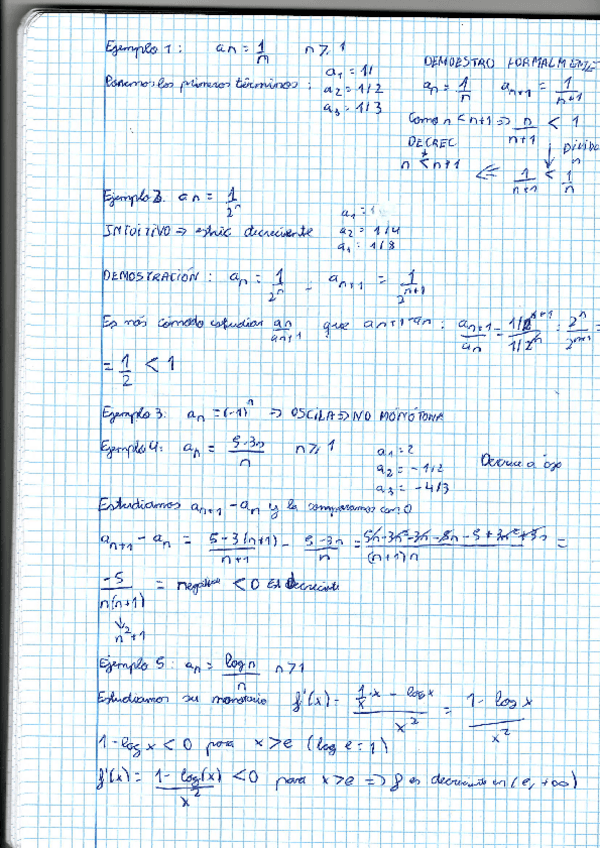 Ejemplo 1: an = 1/n n ≥ 1
DEMOESTRO FORMALMENTE
Ponemos los primeros términos: a1 = 1/1
a2 = 1/2
a3 = 1/3
an = 1/n an+1 = 1/n+1
Como n < n+1 ⇒ n/n+1 < 1
DECREC ↓ Divido n
n < n+1 ⇐ 1/n+1 < 1/n
Ejemplo 2. an = 1/2^n
a1 = 1
INTUITIVO ⇒ estric decreciente a2 = 1/4
a1 = 1/8
DEMOSTRACIÓN: an = 1/2^n - an+1 = 1/2^n+1
Es más cómodo estudiar an/an+1 que an+1-an: an+1/an = 1/2^n+1/1/2^n = 2^n/2^n+1 =
= 1/2 < 1
Ejemplo 3: an = (-1)^n ⇒ OSCILA ⇒ NO MONÓTONA
Ejemplo 4: an = 5-3n/n n ≥ 1
a1 = 2
a2 = -1/2
a3 = -4/3
Decrece a ojo
Estudiamos an+1 - an y la comparamos con 0
an+1 - an = 5-3(n+1)/n+1 - 5-3n/n = 5n-3n²-3n-5n-5+3n²+3n/(n+1)n =
-5/n(n+1) = negativa < 0 Es decreciente
↓
n²+1
Ejemplo 5: an = log n/n n ≥ 1
Estudiamos su monotonía f'(x) = 1/x·x - log x/x² = 1-log x/x²
1-log x < 0 para x > e (log e = 1)
f'(x) = 1-log(x)/x² < 0 para x > e ⇒ f es decreciente en (e, +∞)